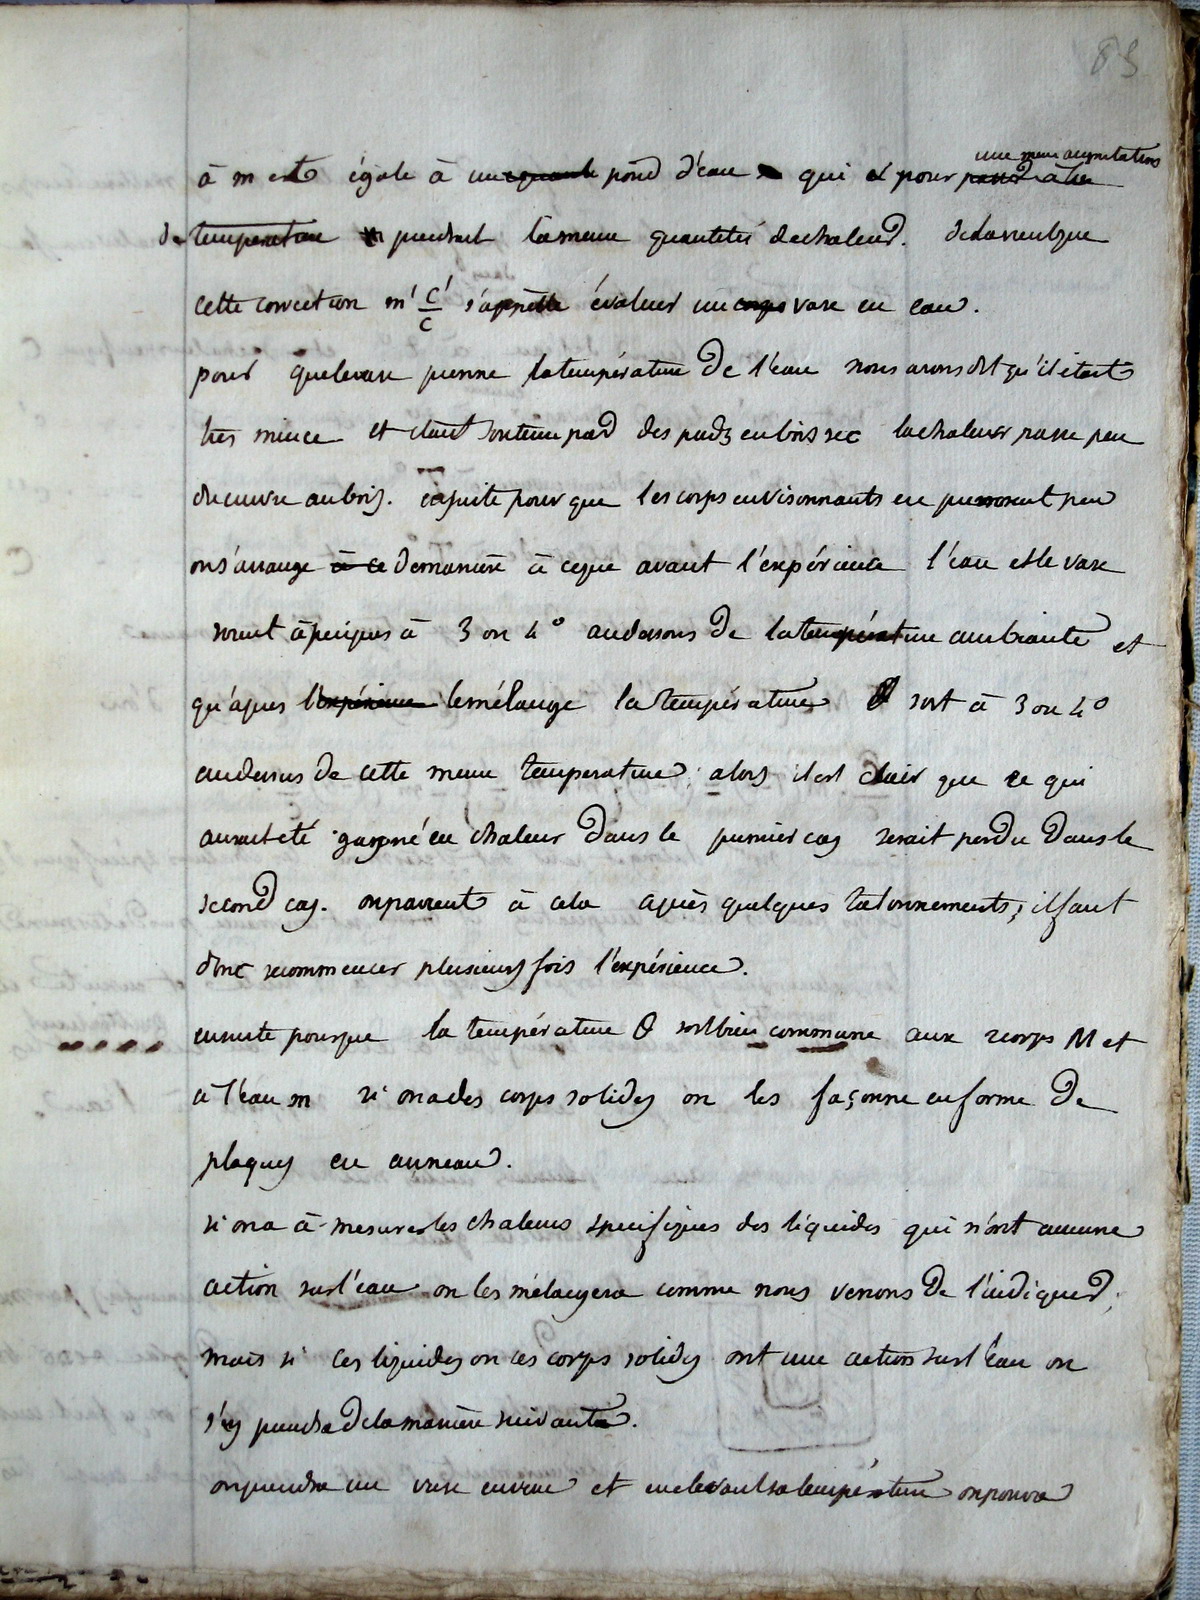 83
une meme augmentation
à m est égale à un poid d'eau qui et pour
de temperature prendrait la meme quantité de chaleur. de la vient que
cette correction m' C'/C s'appelle évaluer un corps vase en eau.
pour que le vase prenne la température de l'eau nous avons dit qu'il était
tres mince et étant soutenu par des pieds en bois sec la chaleur passe peu
du cuivre au bois. ensuite pour que les corps environnants en prennent peu
on s'arrange à ce de maniere à ce que avant l'expérience l'eau et le vase
soient à peu pres à 3 ou 4° au dessous de la température ambiante et
qu'apres l'expérience le mélange la température θ soit à 3 ou 4°
au dessus de cette meme temperature; alors il est clair que ce qui
aurait eté gagné en chaleur dans le premier cas serait perdu dans le
second cas. on parvient à cela après quelques tatonnements; il faut
donc recommencer plusieurs fois l'expérience.
ensuite pour que la température θ soit bien commune aux 2 corps M et
à l'eau m si on a des corps solides on les façonne en forme de
plaques en anneau.
si on a à mesurer les chaleurs specifiques des liquides qui n'ont aucune
action sur l'eau on les mélangera comme nous venons de l'indiquer;
mais si ces liquides ou ces corps solides ont une action sur l'eau on
s'y prendra de la manière suivante.
on prendra un vase et en elevant sa température on pourra